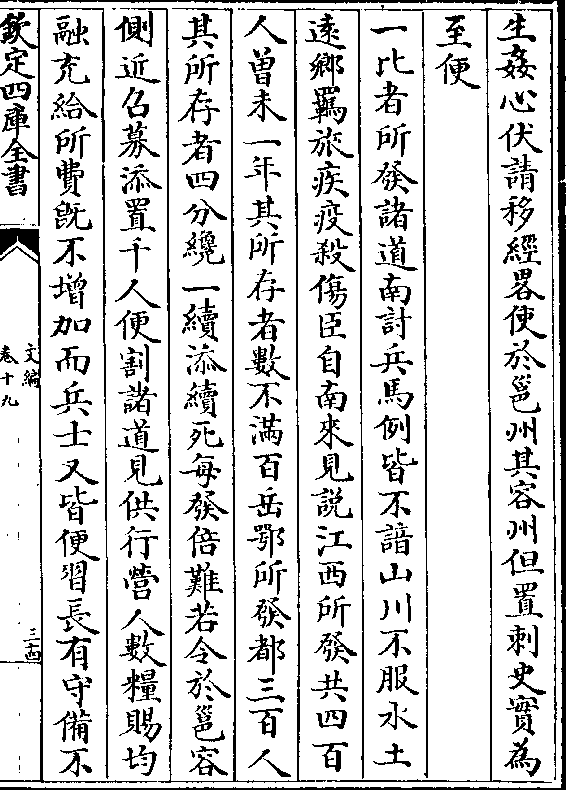 生姦心伏請移經畧使於邕州其容州但置刺史實為
至便
一比者所發諸道南討兵馬例皆不諳山川不服水土
遠鄉羈旅疾疫殺傷臣自南來見説江西所發共四百
人曽未一年其所存者數不滿百岳鄂所發都三百人
其所存者四分纔一續添續死每發倍難若令於邕容
側近召募添置千人便割諸道見供行營人數糧賜均
融充給所費既不增加而兵士又皆便習長有守備不
欽定四庫全書
文編
卷十九
三十四